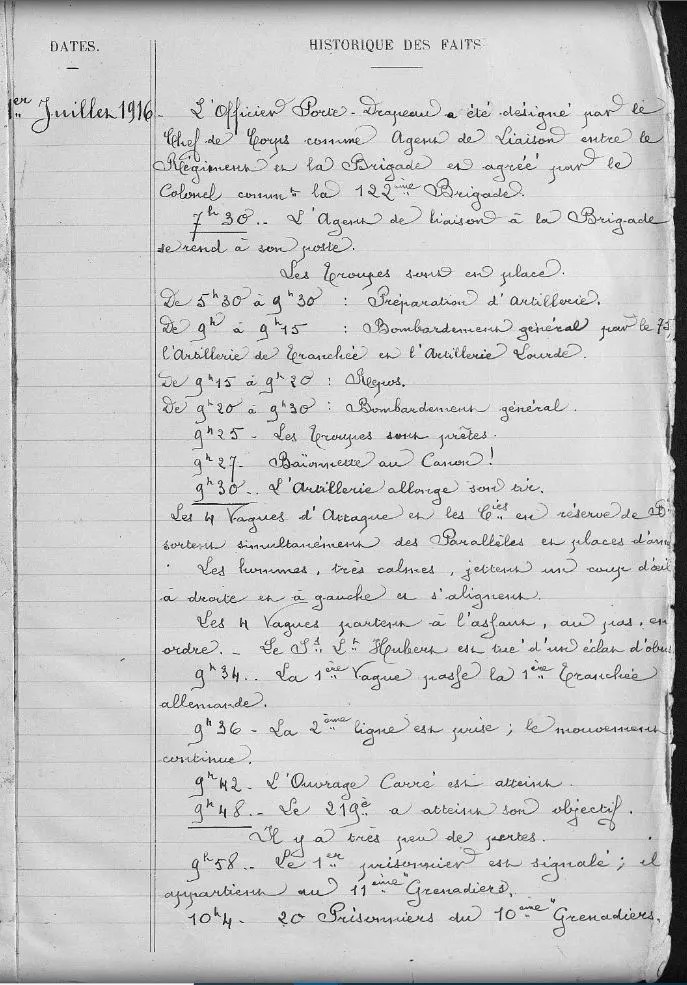 DATES.
HISTORIQUE DES FAITS
1er Juillet 1916 - L'Officier Porte-Drapeau a été désigné par le
Chef de Corps comme Agent de Liaison entre le
Régiment et la Brigade et agréé par le
Colonel commt la 122ème Brigade.
7h30.. L'Agent de liaison à la Brigade
se rend à son poste.
Les Troupes sont en place.
De 5h30 à 9h30 : Préparation d'Artillerie.
De 9h à 9h15 : Bombardement général par le 75,
l'Artillerie de Tranchée et l'Artillerie Lourde.
De 9h15 à 9h20 : Repos.
De 9h20 à 9h30 : Bombardement général.
9h25 - Les Troupes sont prêtes.
9h27 - Baïonnette au Canon !
9h30.. L'Artillerie allonge son tir.
Les 4 Vagues d'Attaque et les Cies en réserve de
sortent simultanément des Parallèles et places
Les hommes, très calmes, jettent un coup d'œil
à droite et à gauche et s'alignent.
Les 4 Vagues partent à l'assaut, au pas, en
ordre. - Le Ss Lt Hubert est tué d'un éclat d'obus
9h34.. La 1ère Vague passe la 1ère Tranchée
allemande.
9h36 - La 2ème ligne est prise ; le mouvement
continue.
9h42 - L'Ouvrage Carré est atteint.
9h48.. Le 219è a atteint son objectif.
Il y a très peu de pertes.
9h58.. Le 1er prisonnier est signalé ; il
appartient au 11ème Grenadiers.
10h4 - 20 Prisonniers du 10ème Grenadiers.